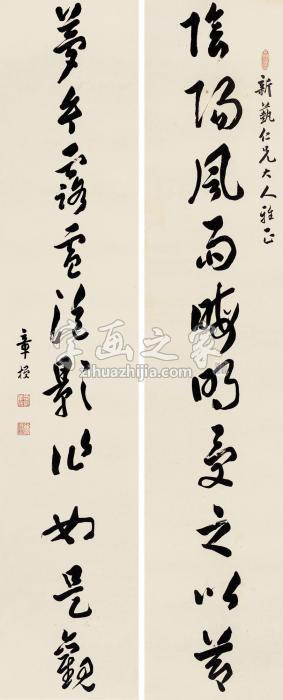 新藝仁兄大人雅正
陰陽風雨晦明受之以節
夢幻露電泡影作如是觀
章梫
字画之家
zihuazhijia.com